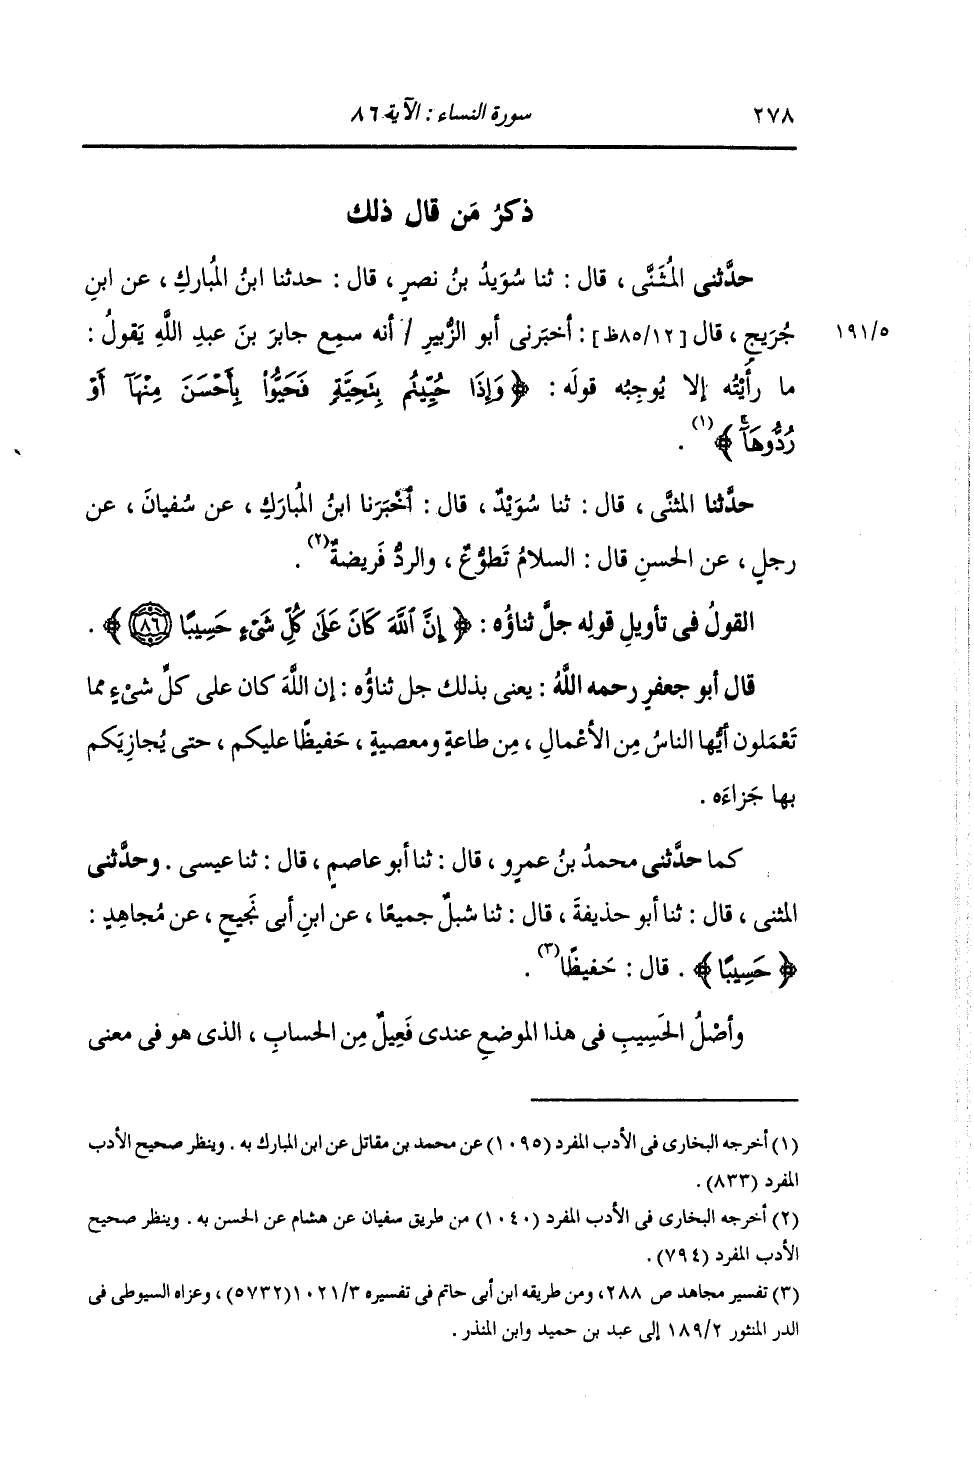 ٢٧٨ سورة النساء : الآية ٨٦
ذكرُ مَن قال ذلك
حدَّثنى المُثنَّى ، قال : ثنا سُوَيدُ بنُ نصرٍ ، قال : حدثنا ابنُ المُباركِ ، عن ابنِ
جُرَيجٍ ، قال [٨٥/١٢ظ] : أخبَرنى أبو الزُّبيرِ / أنه سمِع جابرَ بنَ عبدِ اللَّهِ يَقولُ : ١٩١/٥
ما رأَيْتُه إلا يُوجِبُه قولَه : ﴿ وَإِذَا حُيِّيتُم بِتَحِيَّةٍ فَحَيُّوا۟ بِأَحْسَنَ مِنْهَآ أَوْ
رُدُّوهَآۗ ﴾(١) .
حدَّثنا المثنَّى ، قال : ثنا سُوَيْدٌ ، قال : أخْبَرَنا ابنُ المُبَارَكِ ، عن سُفيانَ ، عن
رجلٍ ، عن الحسنِ قال : السلامُ تَطوُّعٌ ، والردُّ فَريضةٌ(٢) .
القولُ فى تأويلِ قولِه جلَّ ثناؤُه : ﴿ إِنَّ ٱللَّهَ كَانَ عَلَىٰ كُلِّ شَىْءٍ حَسِيبًا ٨٦ ﴾ .
قال أبو جعفرٍ رحمه اللَّهُ : يعنى بذلك جل ثناؤُه : إن اللَّهَ كان على كلِّ شىْءٍ مما
تَعْمَلون أيُّها الناسُ مِن الأعْمالِ ، مِن طاعةٍ ومعصيةٍ ، حَفيظًا عليكم ، حتى يُجازِيَكم
بها جَزاءَه .
كما حدَّثنى محمدُ بنُ عمرٍو ، قال : ثنا أبو عاصمٍ ، قال : ثنا عيسى . وحدَّثنى
المثنى ، قال : ثنا أبو حذيفةَ ، قال : ثنا شبلٌ جميعًا ، عن ابنِ أبى نَجيحٍ ، عن مُجاهِدٍ :
﴿ حَسِيبًا ﴾ . قال : حَفيظًا(٣) .
وأصْلُ الحَسِيبِ فى هذا الموضعِ عندى فَعِيلٌ مِن الحسابِ ، الذى هو فى معنى
(١) أخرجه البخارى فى الأدب المفرد (١٠٩٥) عن محمد بن مقاتل عن ابن المبارك به . وينظر صحيح الأدب
المفرد (٨٣٣) .
(٢) أخرجه البخارى فى الأدب المفرد (١٠٤٠) من طريق سفيان عن هشام عن الحسن به . وينظر صحيح
الأدب المفرد (٧٩٤) .
(٣) تفسير مجاهد ص ٢٨٨، ومن طريقه ابن أبى حاتم فى تفسيره ١٠٢١/٣ (٥٧٣٢) ، وعزاه السيوطى فى
الدر المنثور ١٨٩/٢ إلى عبد بن حميد وابن المنذر .